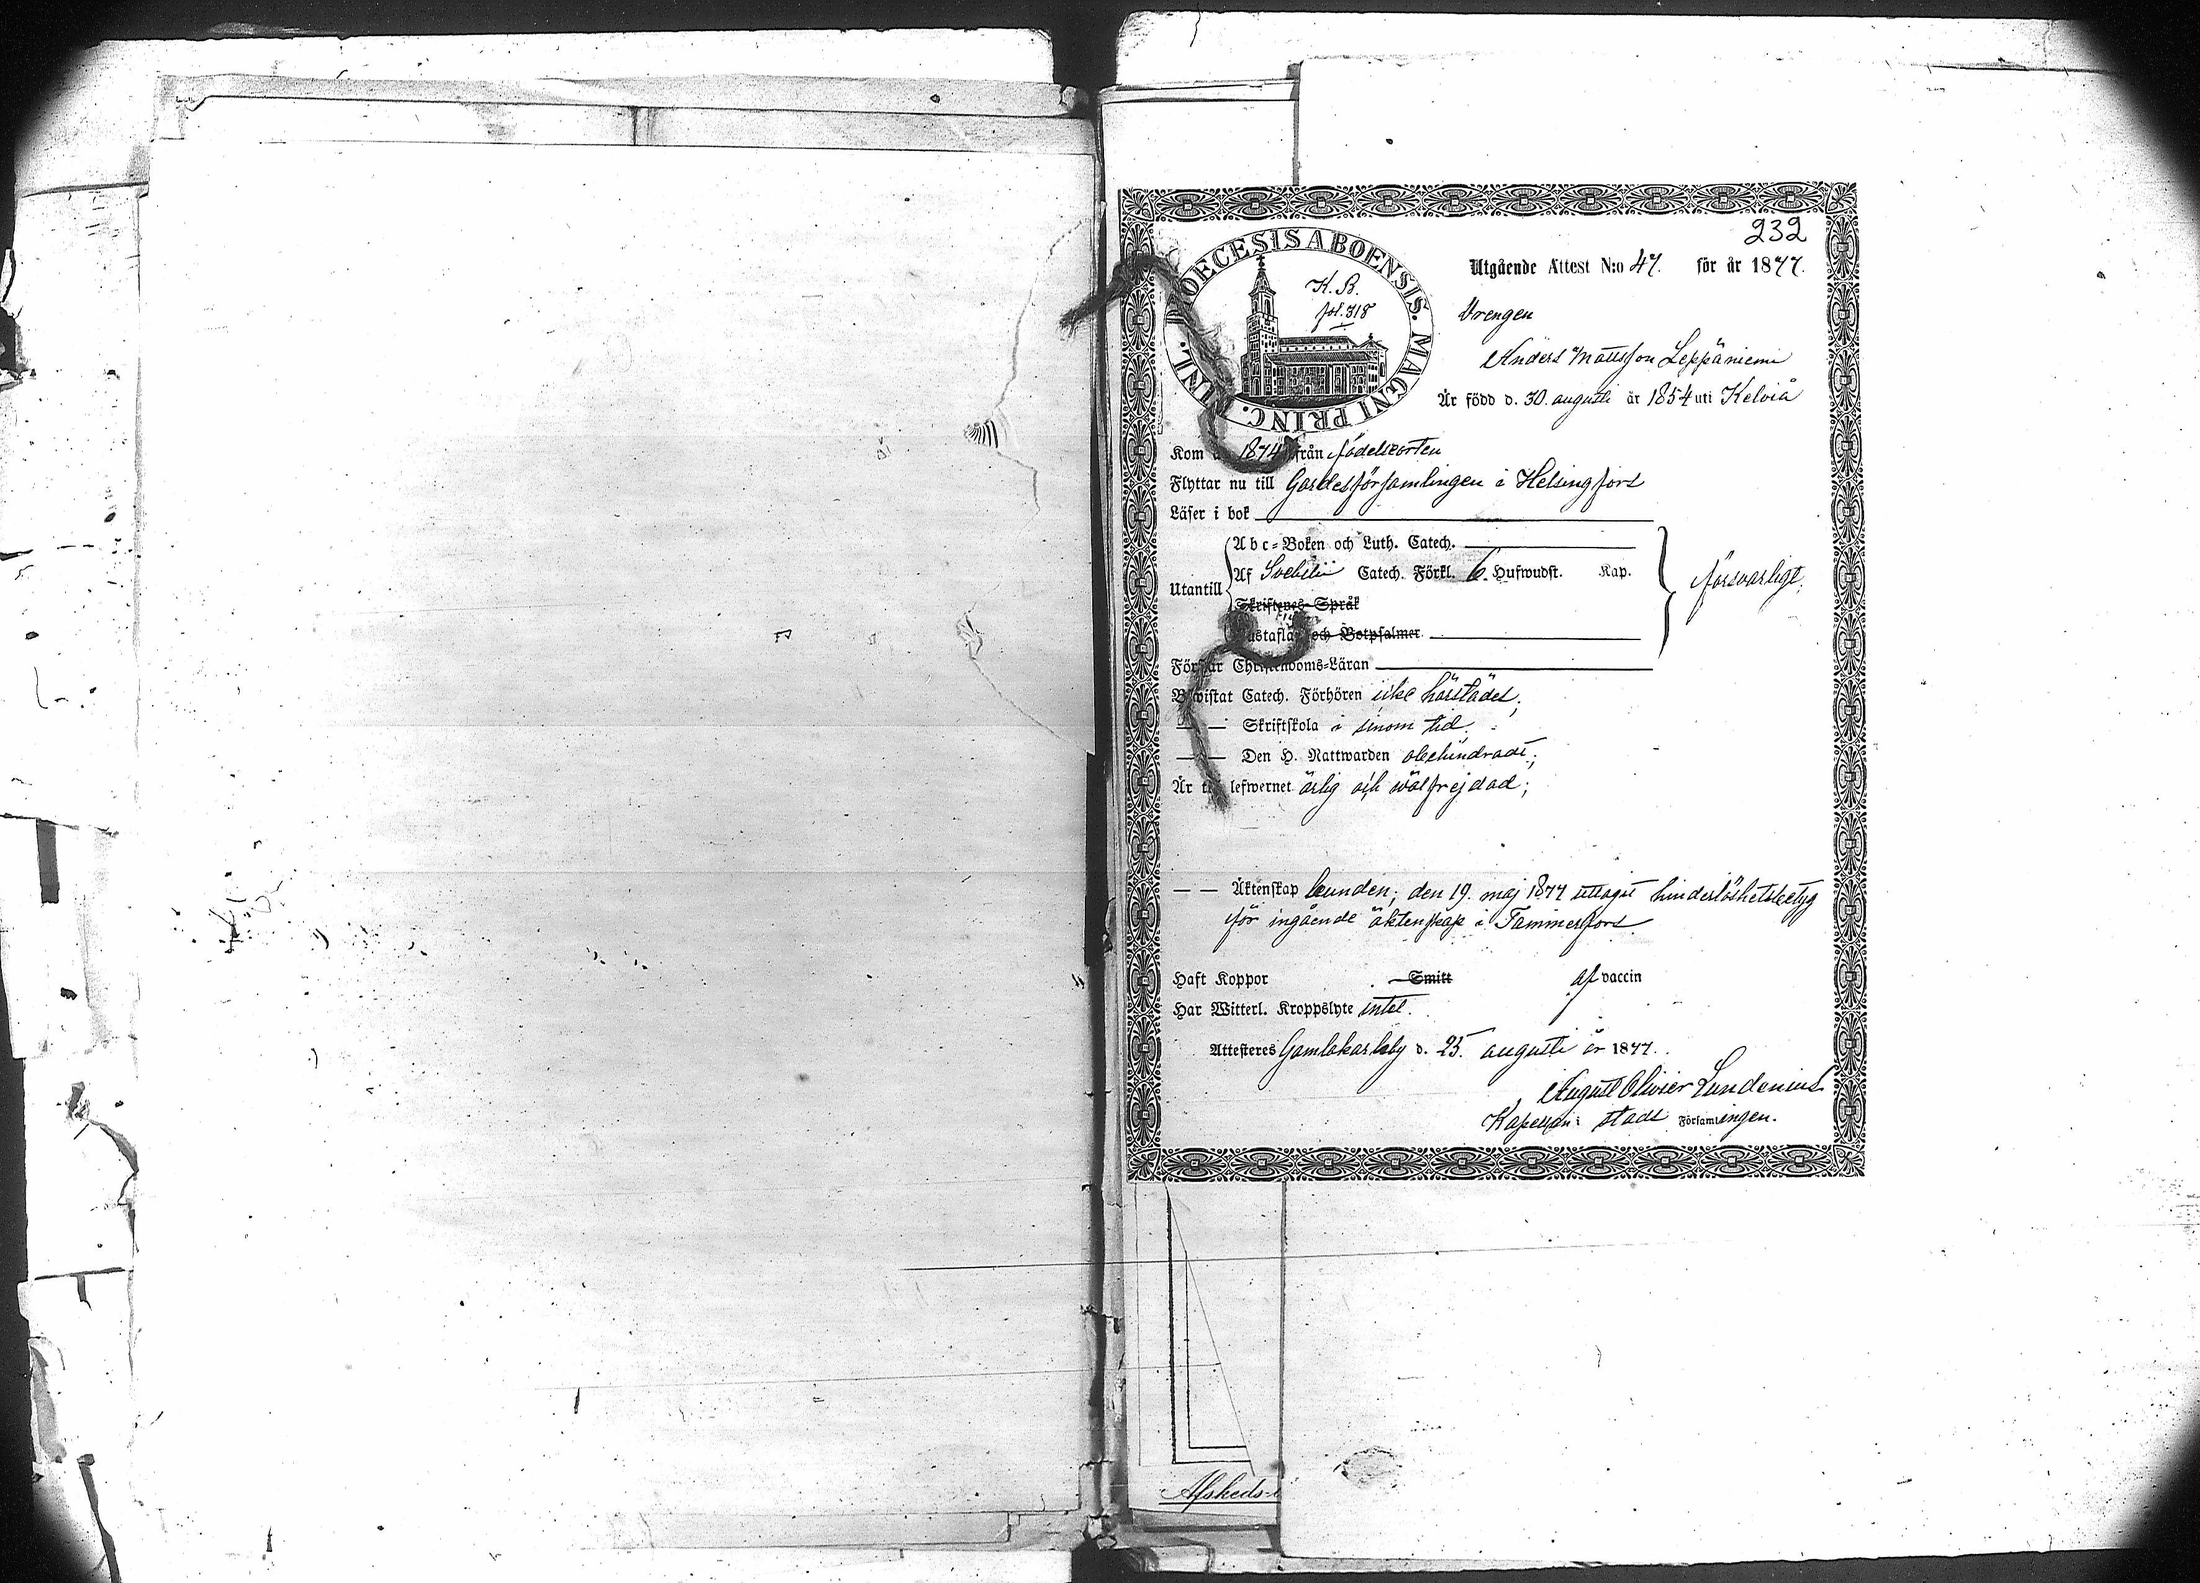 232
DIOECESIS ABOENSIS. MAGNI PRINC. FINL.
K. B.
fol. 318
Utgående Attest N:o 47. för år 1877.
Drengen
Anders Mattsson Leppäniemi
Är född d. 30. augusti år 1854 uti Kelviå
Kom 1874 från födelseorten
Flyttar nu till Gardesförsamlingen i Helsingfors
Läser i bok
Abc-Boken och Luth. Catech.
Utantill Af Svebilii Catech. Förkl. 6. Hufwudst. Kap. försvarligt.
Skriftenes Språk
Hustaflan och Botpsalmer
Förstår Christendoms-Läran
Bewistat Catech. Förhören icke härstädes;
— — Skriftskola i sinom tid.
— — Den H. Nattwarden obehindradt;
Är till lefwernet ärlig och wälfrejdad;
— — Äktenskap bunden; den 19. maj 1877 uttagit hinderlöshetsbetyg
för ingående äktenskap i Tammerfors
Haft Koppor Smitt af vaccin
Har Witterl. Kroppslyte intet.
Attesteres Gamlakarleby d. 25. augusti år 1877.
August Olivier Lundenius
Kapellan i stads Församlingen.
Afskeds-